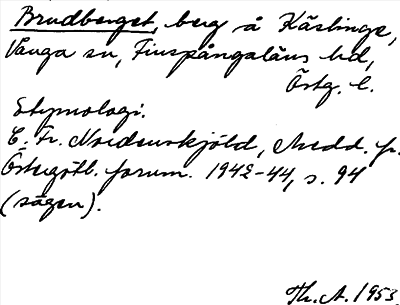 Brudberget, berg å Kästinge,
Vånga sn, Finspångaläns hd,
Östg. l.
Etymologi.
C. Fr. Nordenskjöld, Medd. fr.
Östergötl. fornm. 1942-44, s. 94
(sägen).
Th. A. 1953.